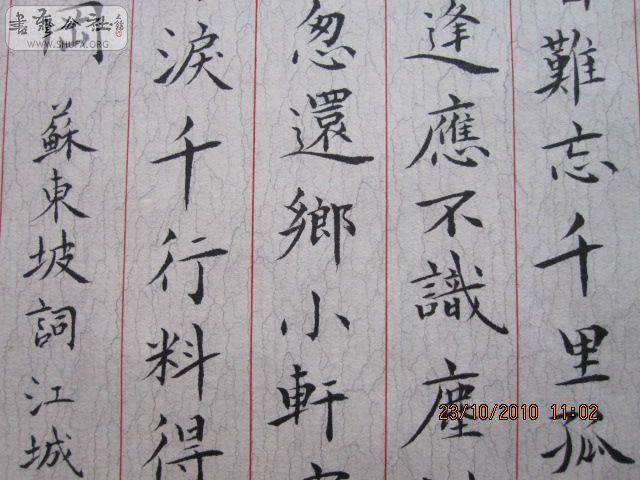 難忘千里孤
逢應不識塵
忽還鄉小軒
淚千行料得
岡
蘇東坡詞江城
書藝公社
WWW.SHUFA.ORG
23/10/2010 11:02